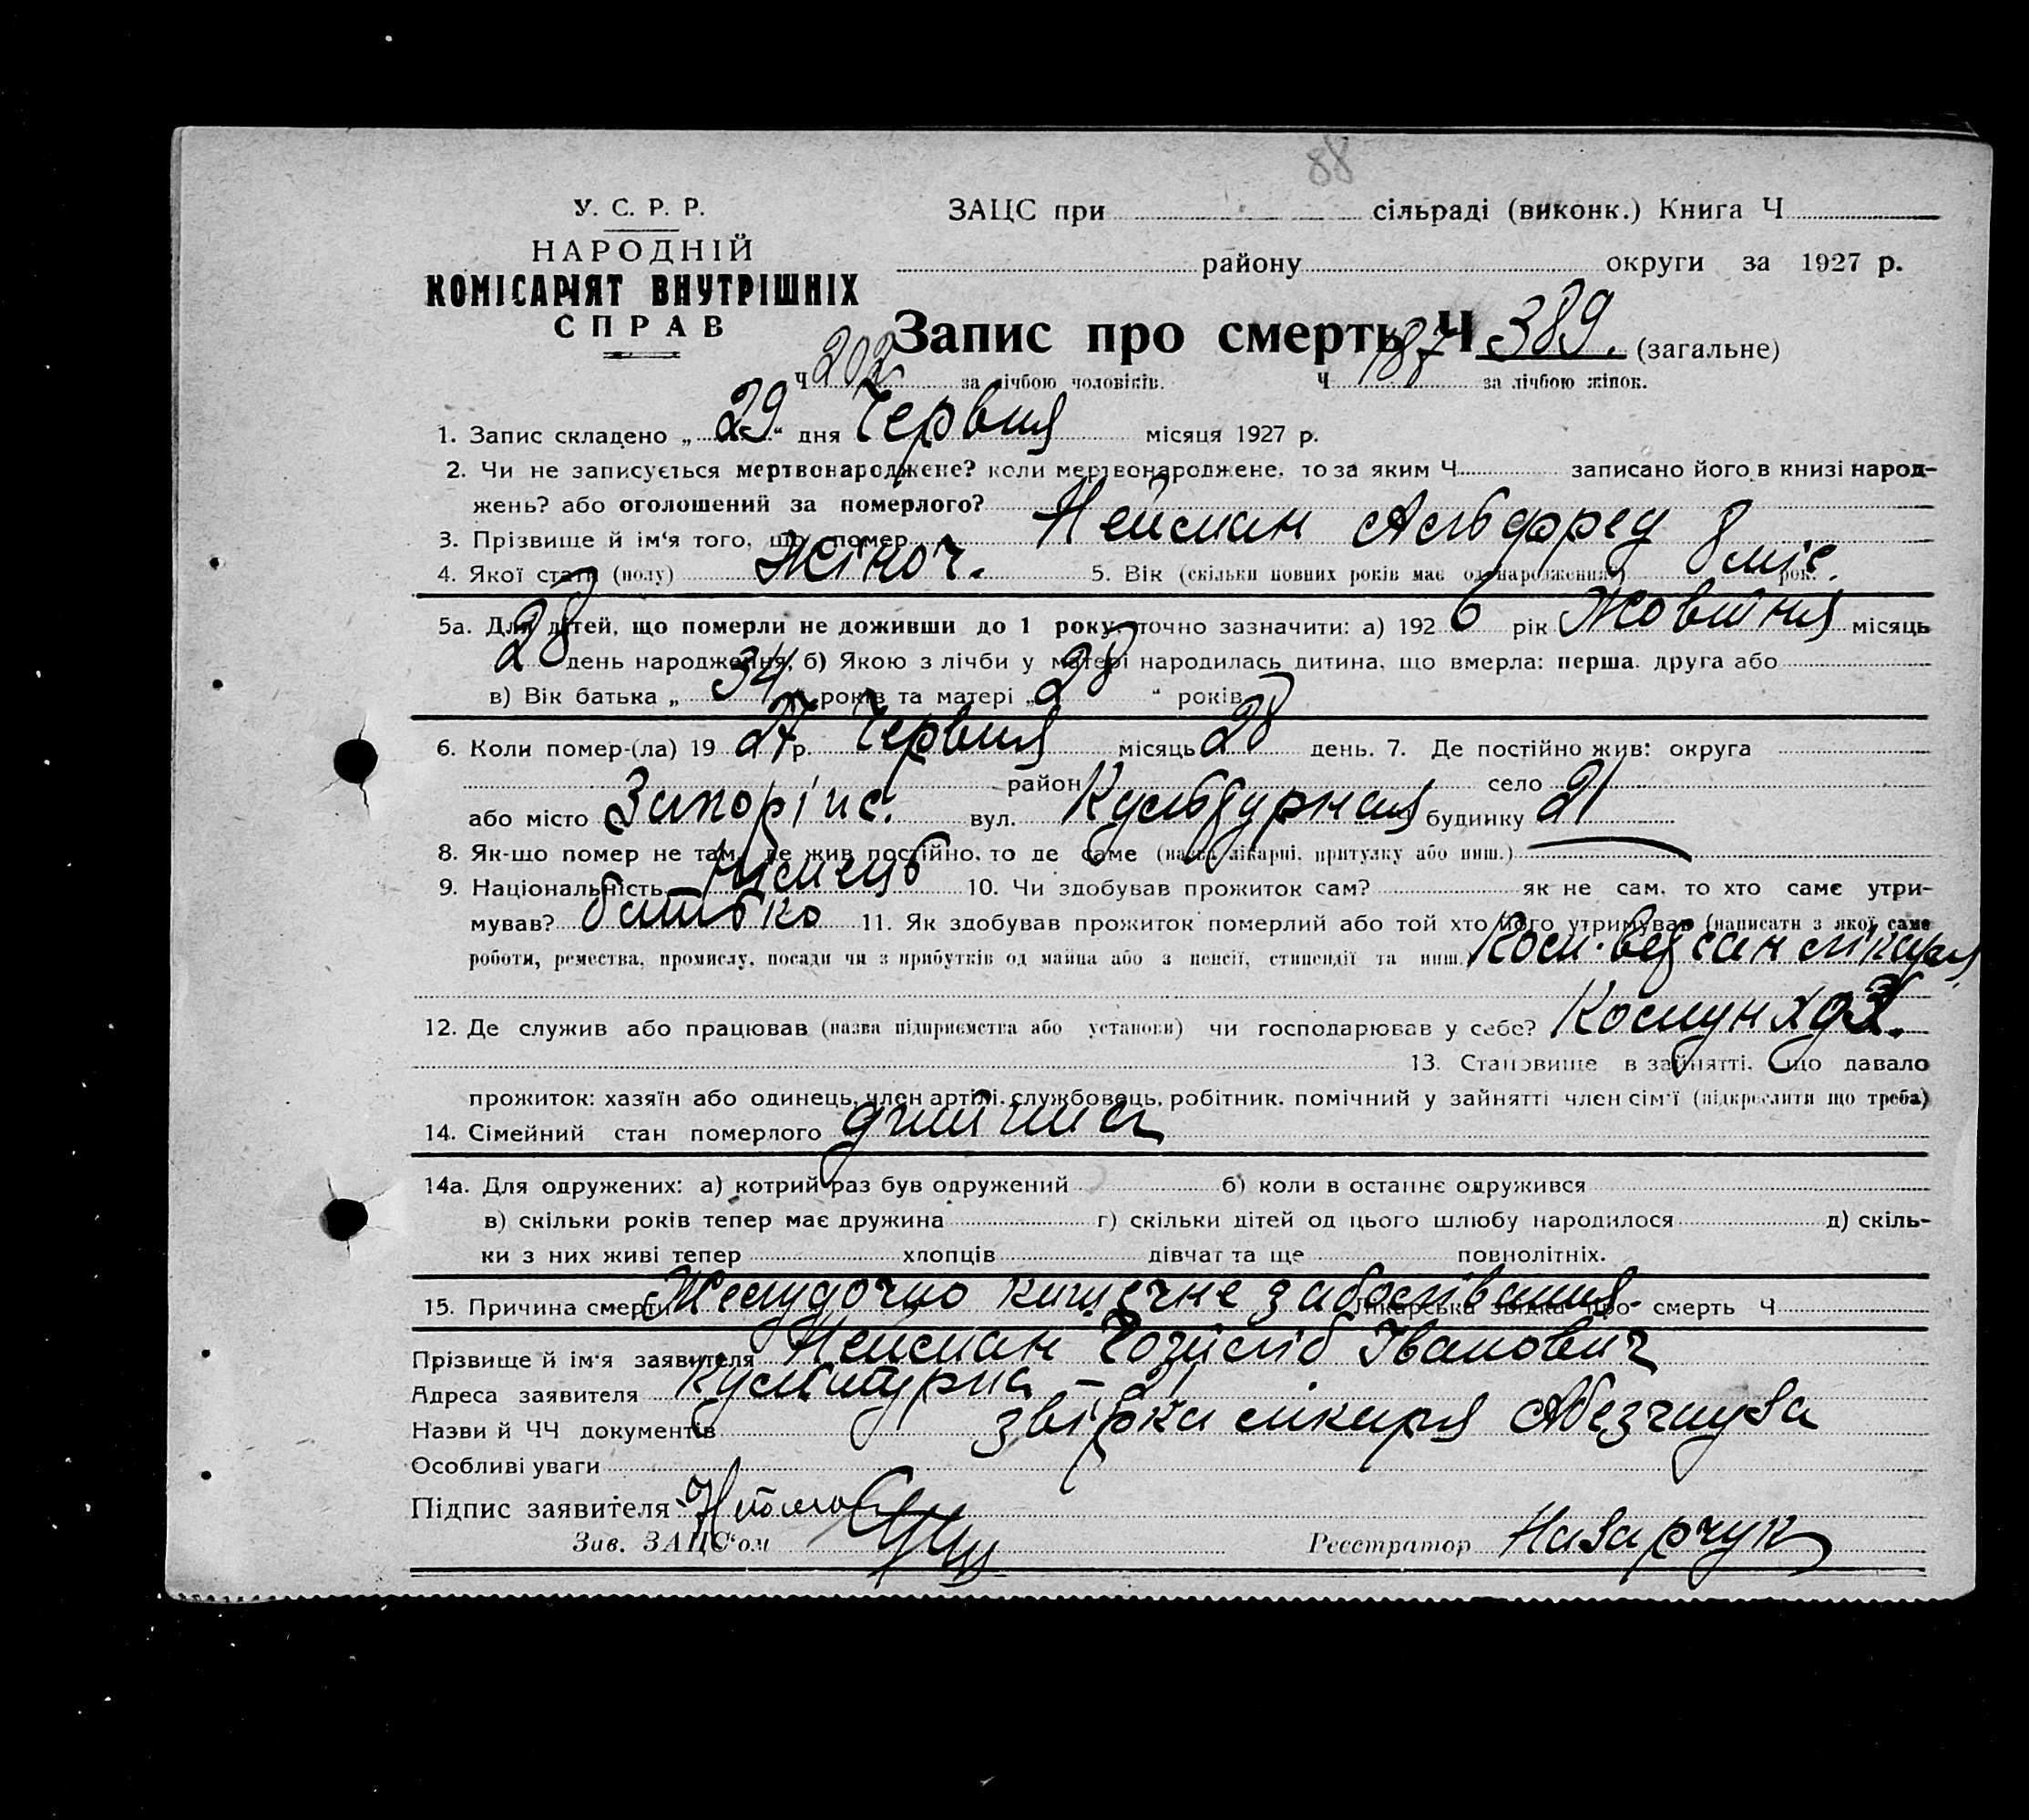 88
У. С. Р. Р.
НАРОДНІЙ
КОМІСАРІЯТ ВНУТРІШНІХ
СПРАВ
ЗАЦС при сільраді (виконк.) Книга Ч
району округи за 1927 р.
Запис про смерть Ч 389. (загальне)
Ч 202 за лічбою чоловіків. Ч 187 за лічбою жінок.
1. Запис складено „29“ дня Червня місяця 1927 р.
2. Чи не записується мертвонароджене? коли мертвонароджене, то за яким Ч записано його в книзі народ-
жень? або оголошений за померлого?
3. Прізвище й ім‘я того, що помер Нейман Альфред
4. Якої статі (полу) Жіноч. 5. Вік (скільки повних років має од народження) 8 міс. рок.
5а. Для дітей, що померли не доживши до 1 року, точно зазначити: а) 1926 рік Жовтня місяць
28 день народження, б) Якою з лічби у матері народилась дитина, що вмерла: перша, друга або
в) Вік батька „34“ років та матері „28“ років
6. Коли помер-(ла) 1927 р. Червня місяць 28 день. 7. Де постійно жив: округа
район село
або місто Запоріж. вул. Культурная будинку 21
8. Як-що помер не там, де жив постійно, то де саме (назва лікарні, притулку або инш.)
9. Національність Німець 10. Чи здобував прожиток сам? як не сам, то хто саме утри-
мував? батько 11. Як здобував прожиток померлий або той хто його утримував (написати з якої саме
роботи, ремества, промислу, посади чи з прибутків од майна або з пенсії, стипендії та инш.)
12. Де служив або працював (назва підприємства або установи) чи господарював у себе?
13. Становище в зайнятті, що давало
прожиток: хазяїн або одинець, член артілі, службовець, робітник, помічний у зайнятті член сім‘ї (підкреслити що треба)
14. Сімейний стан померлого дитина
14а. Для одружених: а) котрий раз був одружений б) коли в останнє одружився
в) скільки років тепер має дружина г) скільки дітей од цього шлюбу народилося д) скіль-
ки з них живі тепер хлопців дівчат та ще повнолітніх.
15. Причина смерти Желудочно кишечне заболівання Лікарська звідка про смерть Ч
Прізвище й ім‘я заявителя Нейман Готліб Іванович
Адреса заявителя Культурна – 21
Назви й ЧЧ документів звідка лікаря
Особливі уваги
Підпис заявителя
Зав. ЗАЦС‘ом Реєстратор Назарчук